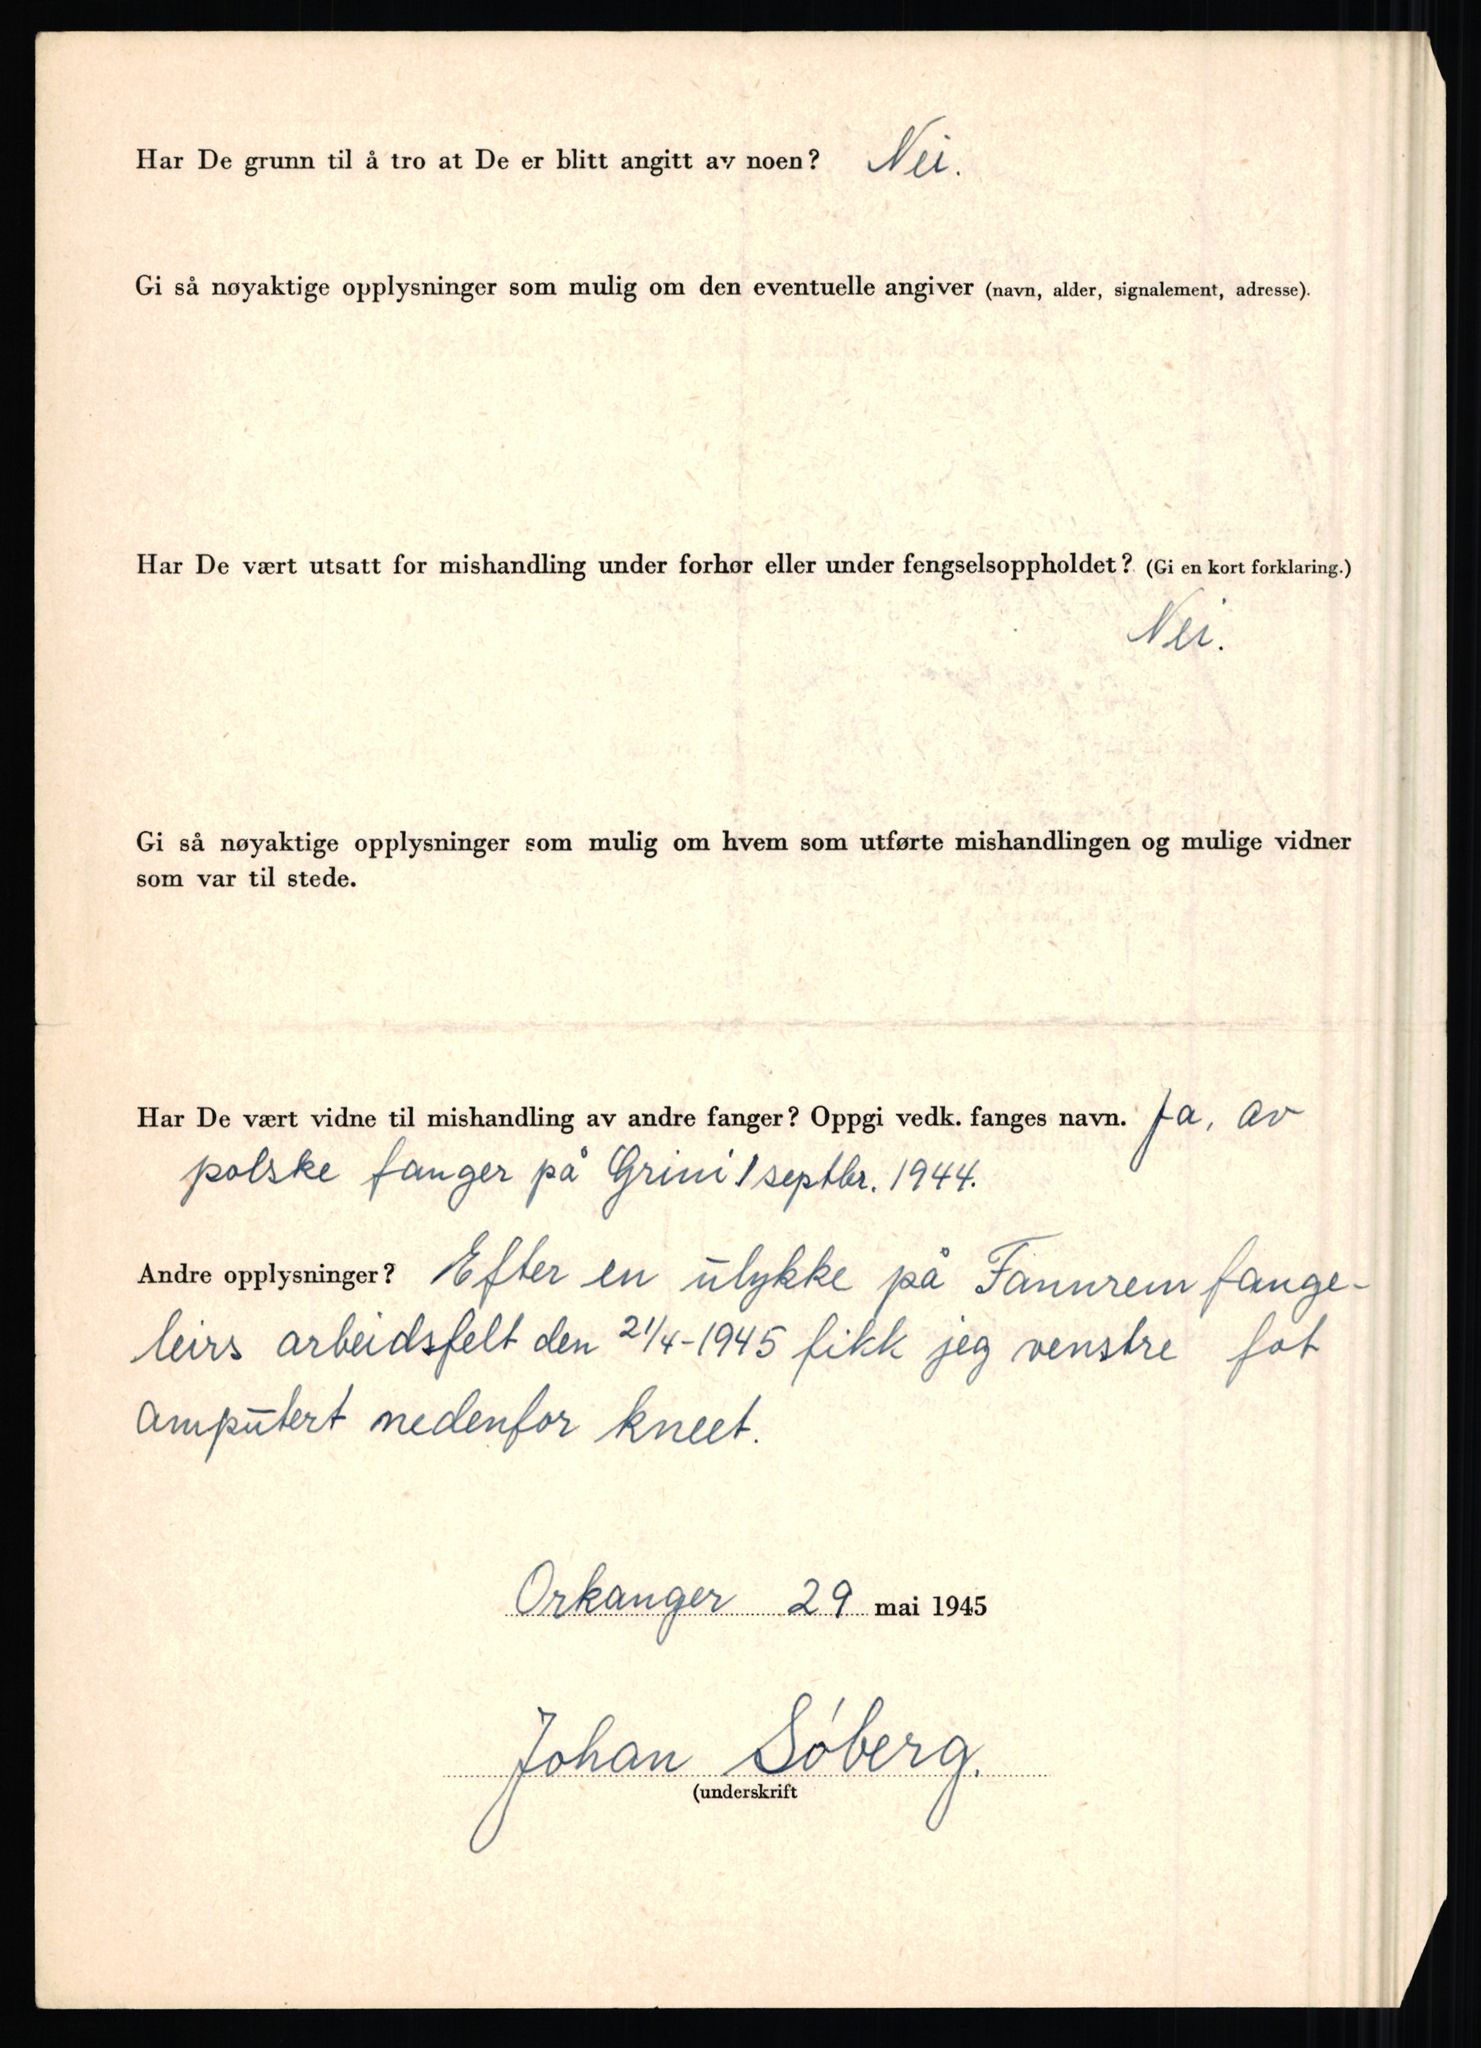 Har De grunn til å tro at De er blitt angitt av noen? Nei.
Gi så nøyaktige opplysninger som mulig om den eventuelle angiver (navn, alder, signalement, adresse).
Har De vært utsatt for mishandling under forhør eller under fengselsoppholdet? (Gi en kort forklaring.)
Nei.
Gi så nøyaktige opplysninger som mulig om hvem som utførte mishandlingen og mulige vidner
som var til stede.
Har De vært vidne til mishandling av andre fanger? Oppgi vedk. fanges navn. Ja, av
polske fanger på Grini i septbr. 1944.
Andre opplysninger? Efter en ulykke på Fannrem fange-
leirs arbeidsfelt den 21/4-1945 fikk jeg venstre fot
amputert nedenfor kneet.
Orkanger 29 mai 1945
Johan Söberg.
(underskrift